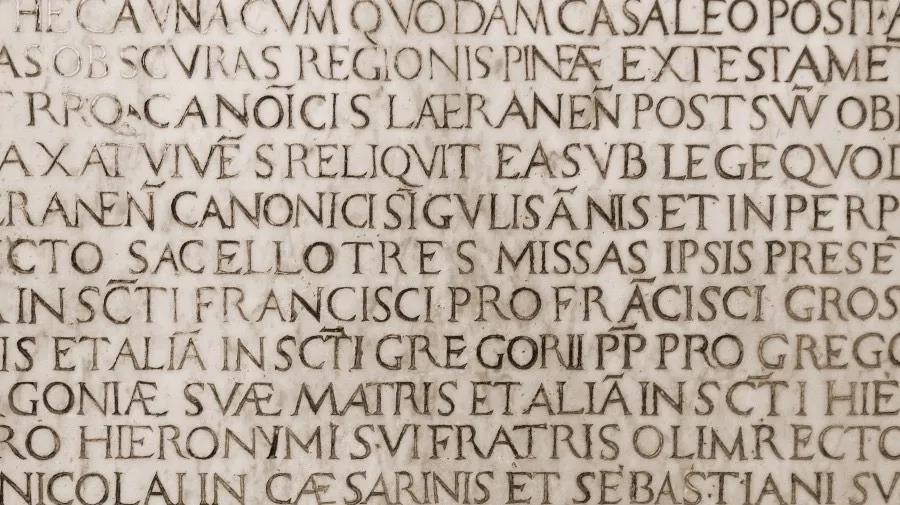 HEC AVNACVM QVODAM CASALEO POSITA
AS OBSCVRAS REGIONIS PINEÆ EXTESTAME
RRO CANOĪCIS LAERANEN̄ POSTSVV̄ OBI
AXAT VIVĒ S RELIQVIT EASVB LEGE QVOD
ERANEN̄ CANONICI SĪGVLISĀNIS ET INPERP
CTO SACELLO TRES MISSAS IPSIS PRESĒ
IN SC̄TI FRANCISCI PRO FRĀCISCI GROS
IS ETALIĀ IN SC̄TI GREGORII PP̄ PRO GREGO
GONIÆ SVÆ MATRIS ETALIĀ IN SC̄TI HIE
RO HIERONYMI S·VI FRATRIS OLIM RECTO
NICOLAI IN CÆSARINIS ET SEBASTIANI SV